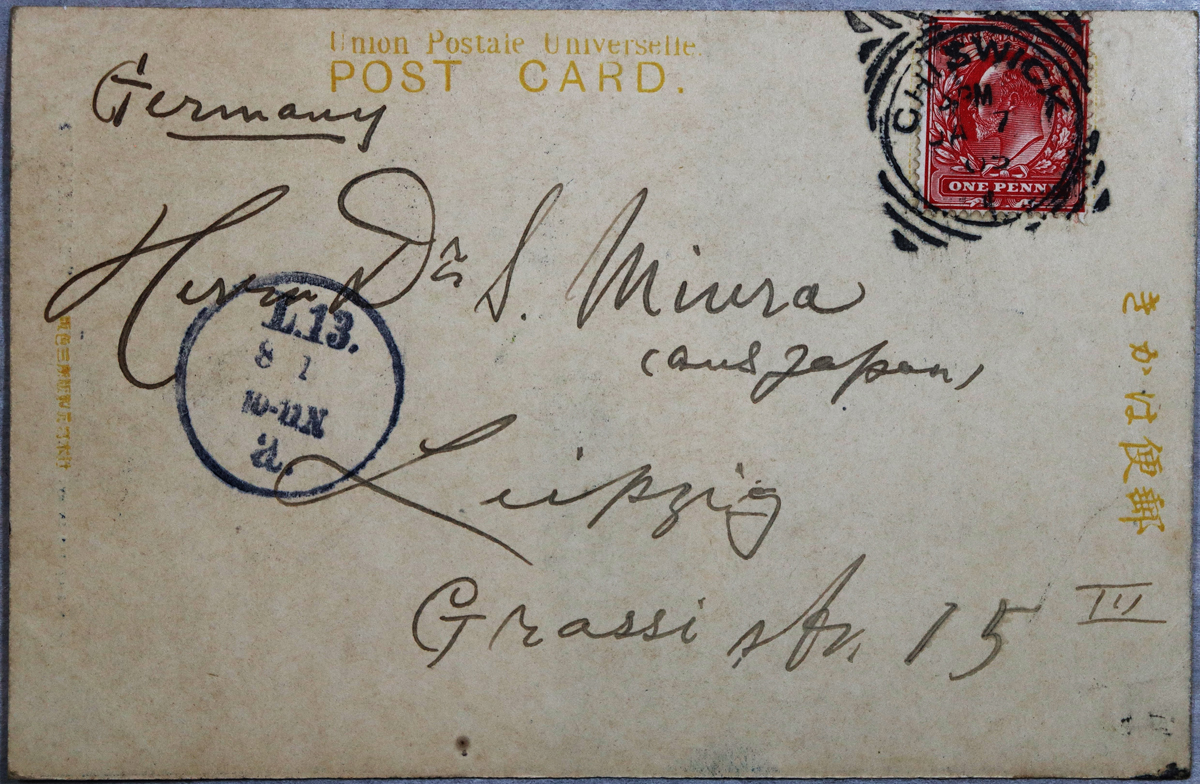 Union Postale Universelle.
POST CARD.
Germany
Herrn Dr S. Miura
(aus Japan)
Leipzig
Grassi str. 15 III
CHISWICK
PM
7
JA
ONE PENNY
L.13.
8 1
10-11N
a.
きかは便郵